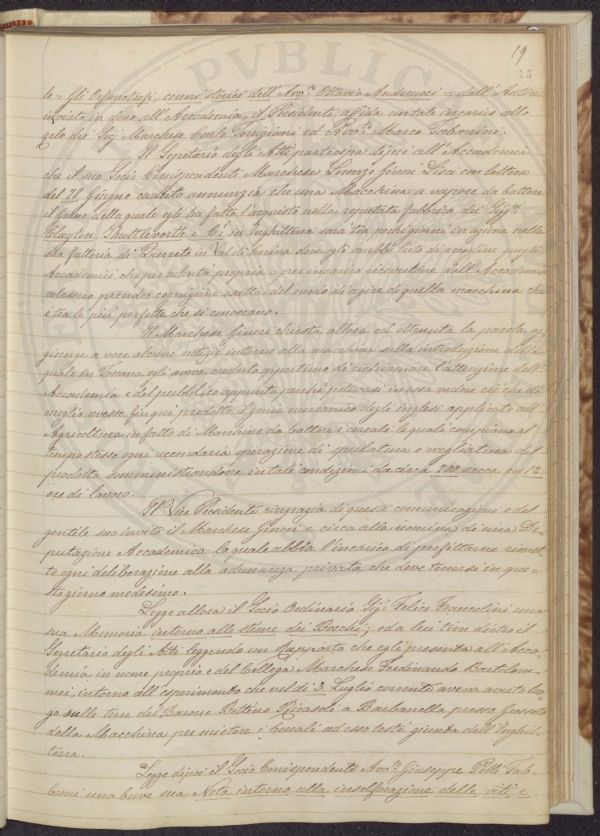 19
15
lo = Gli Orfanotrofj, cenni storici dell' Avv.º Ottavio Andreucci = dall' Autore
inviato in dono all' Accademia, il Presidente affida un tale incarico allo
zelo dei Sigg Marchese Carlo Torrigiani ed Avv.to Marco Tabarrini.
Il Segretario degli Atti partecipa dipoi all' Accademia
che il suo Socio Corrispondente Marchese Lorenzo Ginori Lisci con lettera
del 28 Giugno caduto annunzia che una Macchina a vapore da battere
il grano della quale egli ha fatto l'acquisto nella reputata fabbrica dei Sigg.ri
Clayton Shuttleworth e C.i in Inghilterra sarà tra pochi giorni in azione nella
sua fattoria di Querceto in Val di Cecina dove egli sarebbe lieto di accogliere quegli
Accademici che per volontà propria o per incarico ricevutone dall' Accademia
volessero prender cognizione esatta del modo di agire di quella macchina che
è tra le più perfette che si conoscano.
Il Marchese Ginori chiesta allora ed ottenuta la parola, ag-
giunge a voce alcune notizie intorno alla macchina sulla introduzione della
quale in Toscana egli aveva creduto opportuno di richiamare l'attenzione dell'
Accademia e del pubblico appunto perchè potevasi in essa vedere ciò che di
meglio avesse fin qui prodotto il genio meccanico degli inglesi applicato all'
Agricoltura in fatto di Macchine da battere i cereali le quali compiano al
tempo stesso ogni secondaria operazione di pulitura e vagliatura del
prodotto somministrandone in tale condizione da circa 200 sacca in 12
ore di lavoro.
Il Vice Presidente ringrazia di queste comunicazioni e del
gentile suo invito il Marchese Ginori e circa alla nomina di una De-
putazione Accademica la quale abbia l'incarico di profittarne rimet-
te ogni deliberazione alla adunanza privata che deve tenersi in que-
sto giorno medesimo.
Legge allora il Socio Ordinario Sig.r Felice Francolini una
sua Memoria intorno alle stime dei Boschi; e da lei tien dietro il
Segretario degli Atti leggendo un Rapporto che egli presenta all' Acca-
demia in nome proprio e del Collega Marchese Ferdinando Bartolom-
mei intorno all' esperimento che nel dì 3 Luglio corrente aveva avuto luo-
go sulle terre del Barone Bettino Ricasoli a Barbanella presso Grosseto
della Macchina per mietere i Cereali ad esso testè giunta dall' Inghil-
terra.
Legge dipoi il Socio Corrispondente Avv.to Giuseppe Pelli Fab-
broni una breve sua Nota intorno alla insolforazione delle viti e